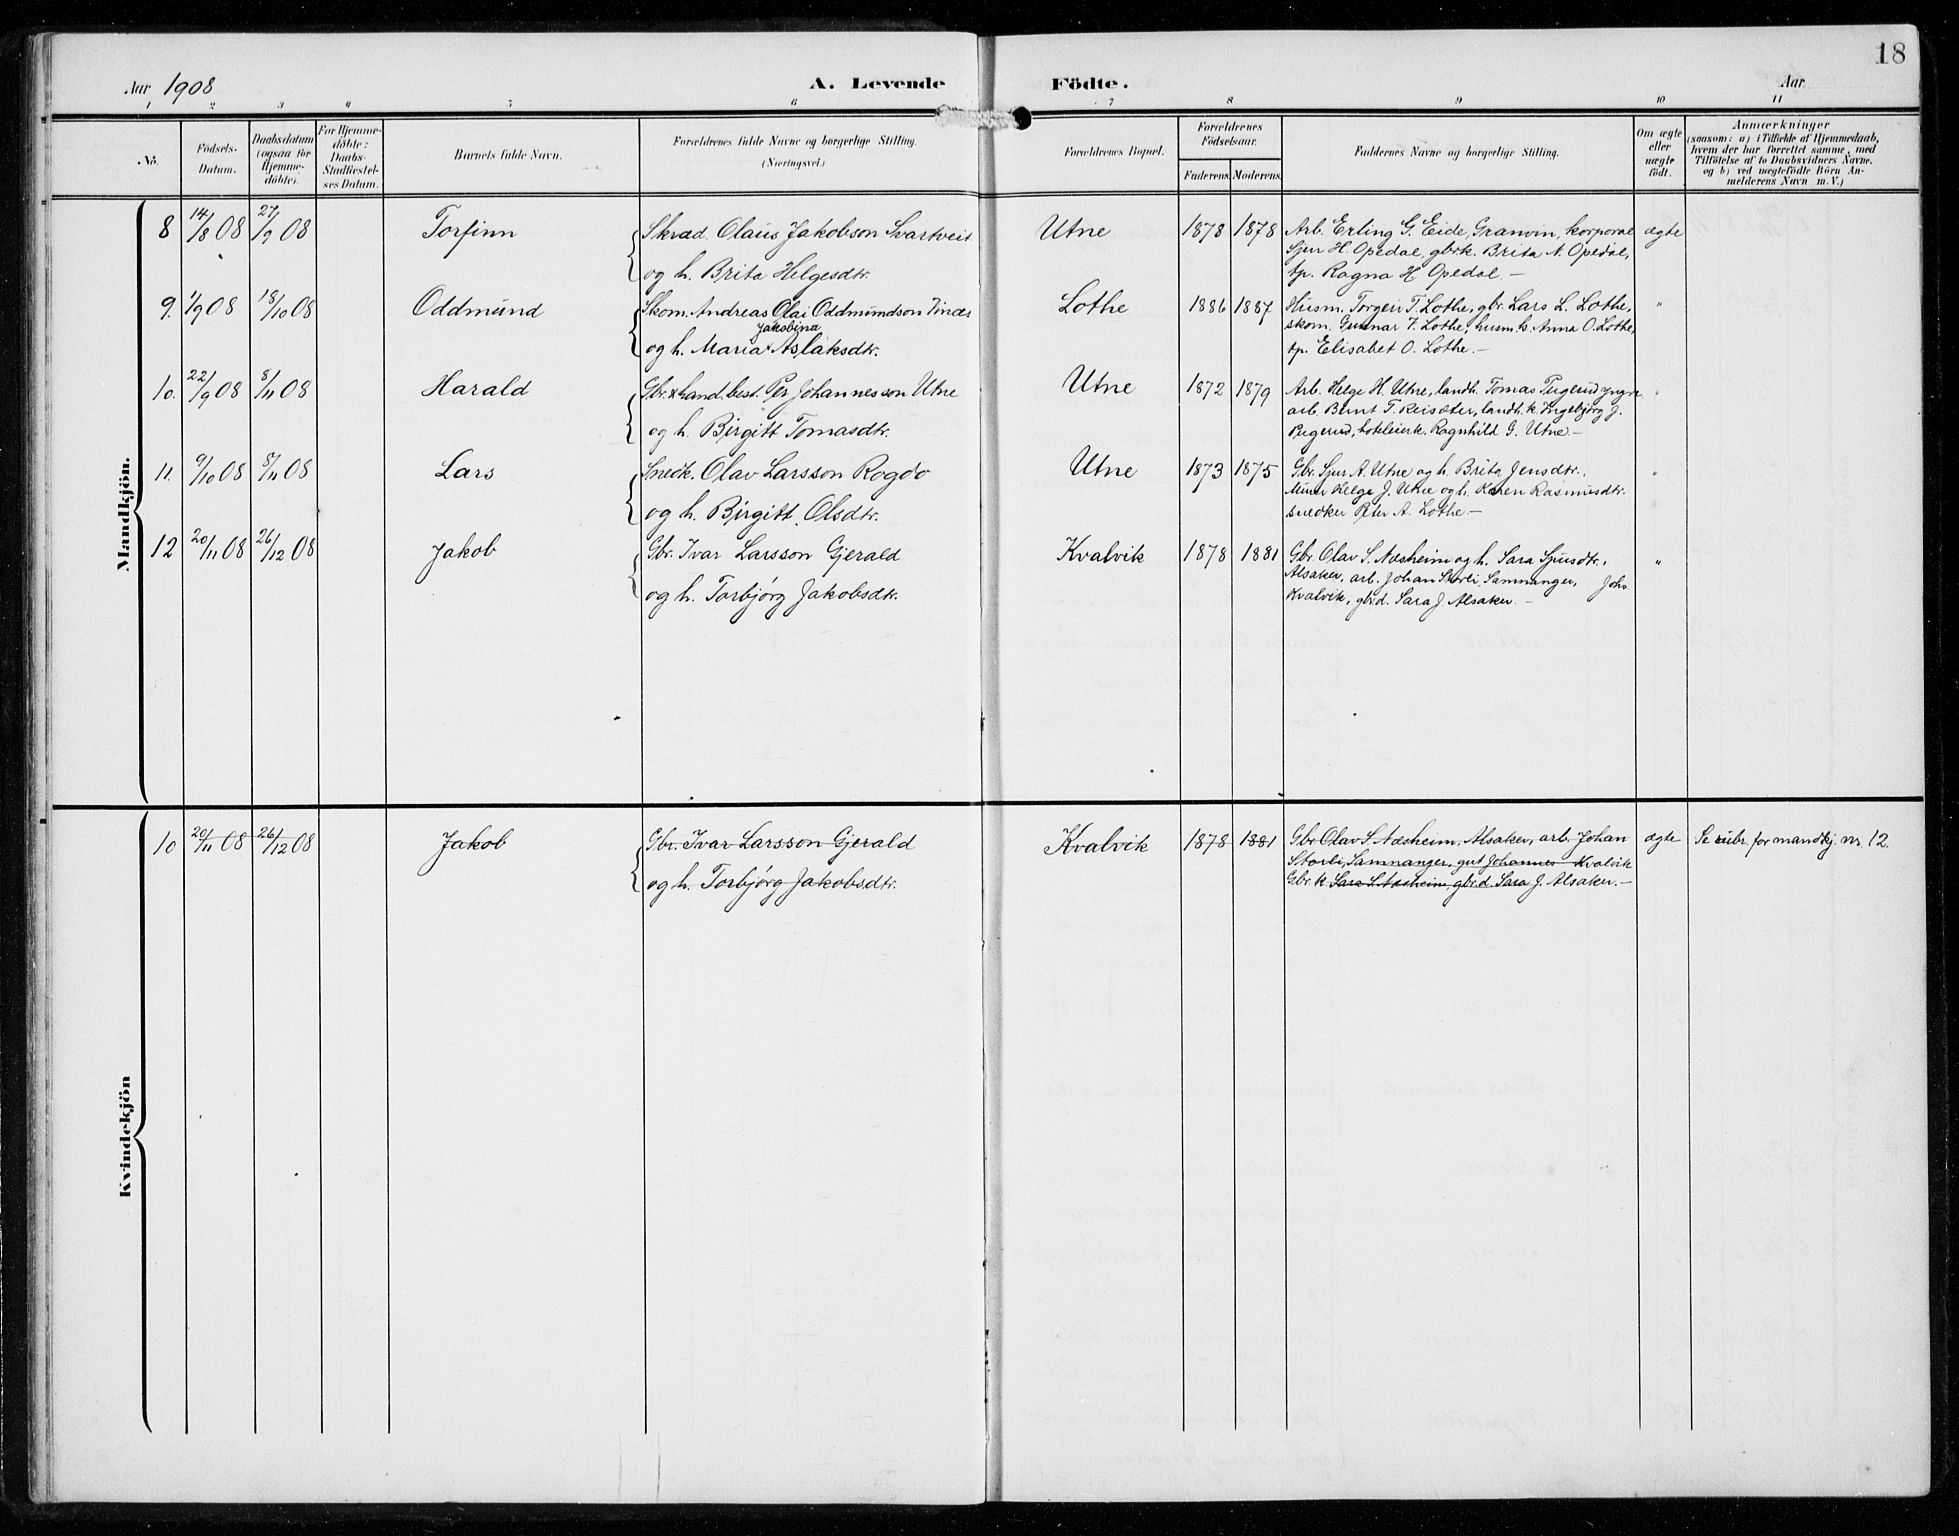 18
Aar 1908 A. Levende Födte. Aar
1 2 3 4 5 6 7 8 9 10 11
No. Födsels-Datum. Daabsdatum (ogsaa for Hjemme-döbte). For Hjemme-döbte: Daabs-Stadfæstel-ses Datum. Barnets fulde Navn. Forældrenes fulde Navne og borgerlige Stilling. (Næringsvei.) Forældrenes Bopæl. Forældrenes Födselsaar. Faderens. Moderens. Faddernes Navne og borgerlige Stilling. Om ægte eller uægte födt. Anmærkninger (saasom: a) i Tilfælde af Hjemmedaab, hvem der har forrettet samme, med Tilföielse af to Daabsvidners Navne. og b) ved uægtefödte Börn An-melderens Navn m. V.)
Mandkjön.
8 14/8 08 27/9 08 Torfinn Skræd. Olaus Jakobson Svartveit Utne 1878 1878 Arb. Erling G. Eide, Granvin, korporal ægte
Sjur H. Opedal, gbrk. Brita N. Opedal,
og h. Brita Helgesdtr. tp. Ragna H Opedal. —
9. 1/9 08 18/10 08 Oddmund Skom. Andreas Olai Oddmundson Vinæs Lothe 1886 1887 Husm. Torgeir T. Lothe, gbr. Lars L. Lothe, "
Jakobina skom. Gunnar T. Lothe, husm. k. Anna O. Lothe,
og h. Maria Aslaksdtr. tp. Elisabet O. Lothe. —
10. 22/9 08 8/11 08 Harald Gbr. & hand. best. Per Johannesson Utne Utne 1872 1879 Arb. Helge H. Utne, landh. Tomas "
arb. Bernt T. Reisæter, landh. k. Ingebjørg J.
og h. Birgitt Tomasdtr. hoteleierk. Ragnhild G. Utne —
11. 9/10 08 8/11 08 Lars Snedk. Olav Larsson Rogdo Utne 1873 1875 Gbr. Sjur A. Utne og h. Brita Jensdtr., "
Murer Helge J. Utne og h. Karen Rasmusdtr.
og h. Birgitt Olsdtr. snedker Peter A. Lothe. —
12 20/11 08 26/12 08 Jakob Gbr. Ivar Larsson Gjerald Kvalvik 1878 1881 Gbr. Olav S. Næsheim og h. Sara Sjursdtr., "
Alsaker, arb. Johan Storli, Samnanger, Johs
og h. Torbjørg Jakobsdtr. Kvalvik, gbrd. Sara J. Alsaker. —
Kvindekjön
10 20/11 08 26/12 08 Jakob Gbr. Ivar Larsson Gjerald Kvalvik 1878 1881 Gbr. Olav S. Næsheim, Alsaker, arb. Johan ægte Se rubr. for mandkj. nr. 12.
Storli, Samnanger, gut Johannes Kvalvik
og h. Torbjørg Jakobsdtr. Gbr. k. Sara S. Næsheim, gbrd. Sara J. Alsaker. —